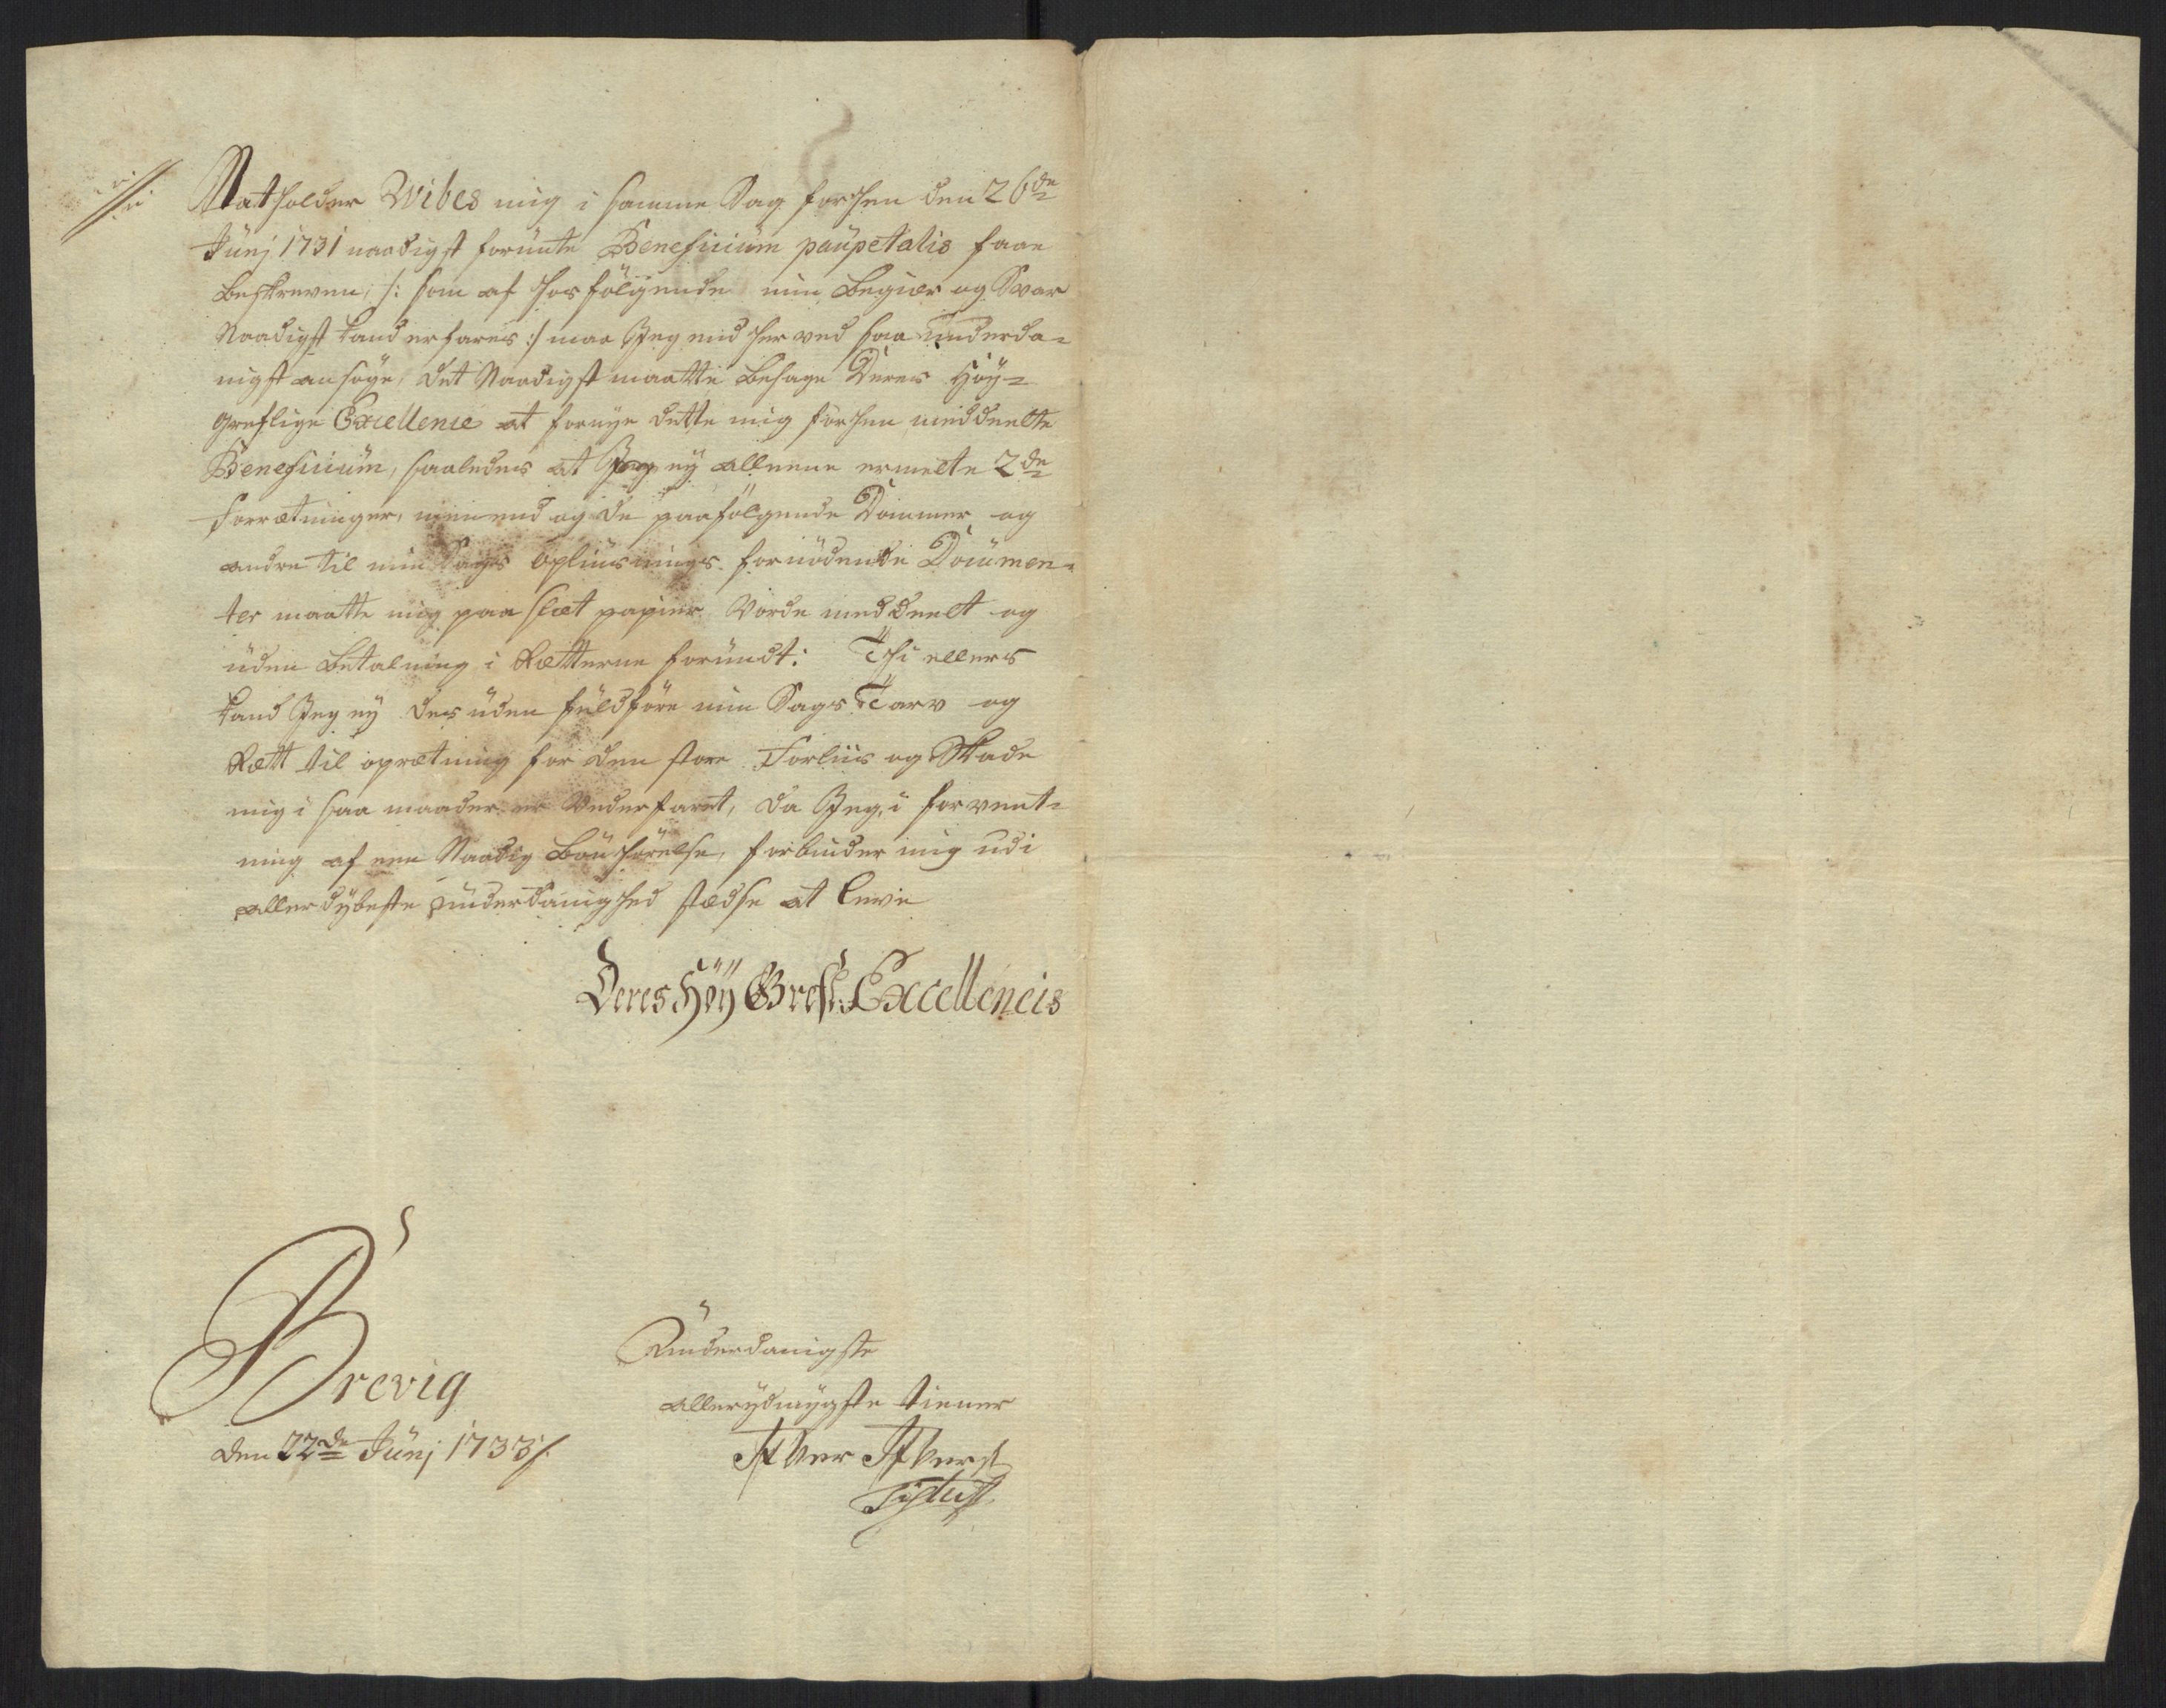 Statholder Wibes mig i samme Sag forhen den 26de
Junj 1731 naadigst forunte Beneficium paupetatis faae
beskreven, /: som af hos følgende min Begiær og Svar
Naadigst kand erfares :/ maa Jeg end her ved saa underda-
nigst ansøge, det Naadigst maatte behage Deres Høy-
Greflige Excellence at fornye dette mig forhen meddeelte
Beneficium, saaledes at Jeg ey alleene ermelte 2de
Forrætninger, men end og de paafølgende Dommer og
andre til min Sags Opliusnings fornødende Documen-
ter maatte mig paa slæt papier Vorde meddeelt og
uden betalning i Rætterne forundt: Thi ellers
kand Jeg ey des uden fuldføre min Sags Tarv og
Rætt til oprætning for den store Forliis og Skade
mig i saa maader er Vederfaret, da Jeg, i forvent-
ning af een Naadig bønhørelse, forbinder mig udi
allerdybeste underdanighed stædse at leve
Deres Høy Grefl: Excellencis
Brevig
den 22de Junj 1733/.
Underdanigste
allerydmygste tiener
Ifver Ifvers